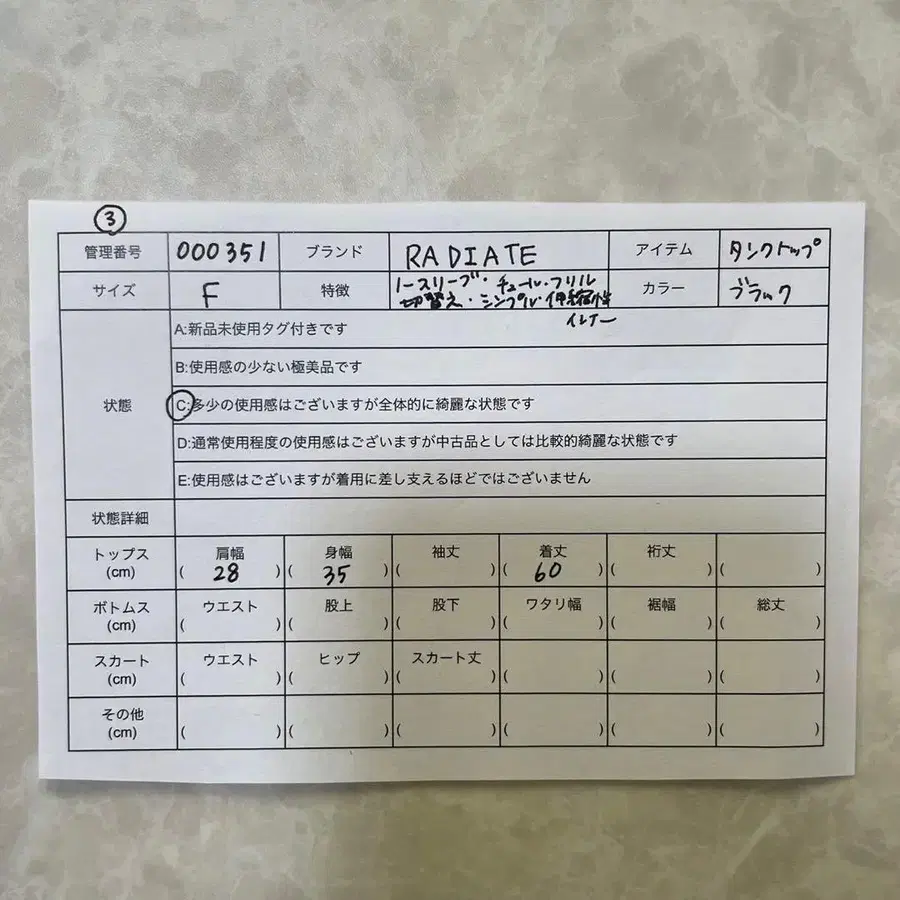 ③
管理番号 000351 ブランド RADIATE アイテム タンクトップ
サイズ F 特徴 ノースリーブ・チュール・フリル カラー ブラック
切替え・シンプル・伸縮性
インナー
状態
A:新品未使用タグ付きです
B:使用感の少ない極美品です
C:多少の使用感はございますが全体的に綺麗な状態です
D:通常使用程度の使用感はございますが中古品としては比較的綺麗な状態です
E:使用感はございますが着用に差し支えるほどではございません
状態詳細
トップス 肩幅 身幅 袖丈 着丈 裄丈
(cm) ( 28 ) ( 35 ) ( ) ( 60 ) ( ) ( )
ボトムス ウエスト 股上 股下 ワタリ幅 裾幅 総丈
(cm) ( ) ( ) ( ) ( ) ( ) ( )
スカート ウエスト ヒップ スカート丈
(cm) ( ) ( ) ( ) ( ) ( ) ( )
その他
(cm) ( ) ( ) ( ) ( ) ( ) ( )